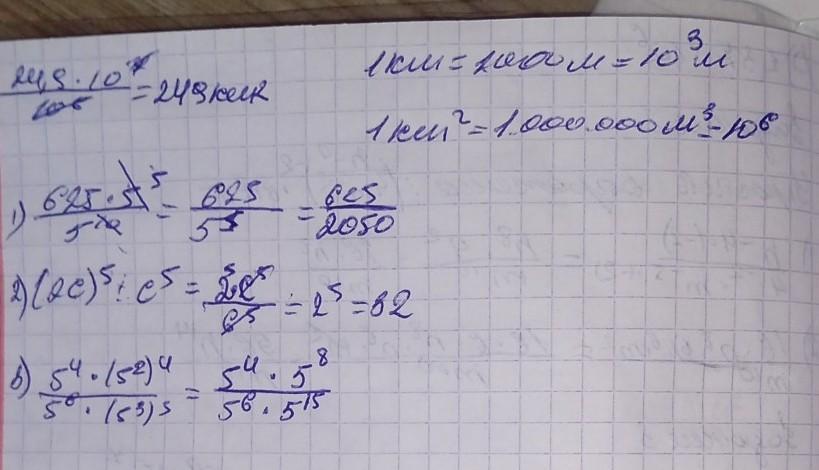 24,9 · 10⁷ / 10⁶ = 249 км²
1 км = 1000 м = 10³ м
1 км² = 1.000.000 м³ = 10⁶
1) 625 · 5⁵ / 5¹⁰ = 625 / 5⁵ = 625 / 2050
2) (2c)⁵ : c⁵ = 2⁵c⁵ / c⁵ = 2⁵ = 32
в) 5⁴ · (5²)⁴ / 5⁶ · (5³)⁵ = 5⁴ · 5⁸ / 5⁶ · 5¹⁵